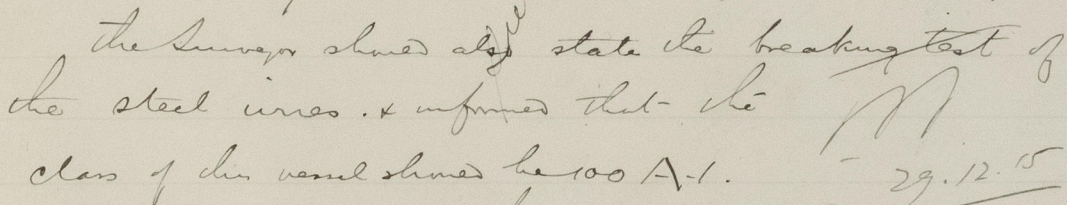 the Surveyor should also state the breaking test of
the steel wires. & informed that the
class of this vessel should be 100 A-1.
29.12.15